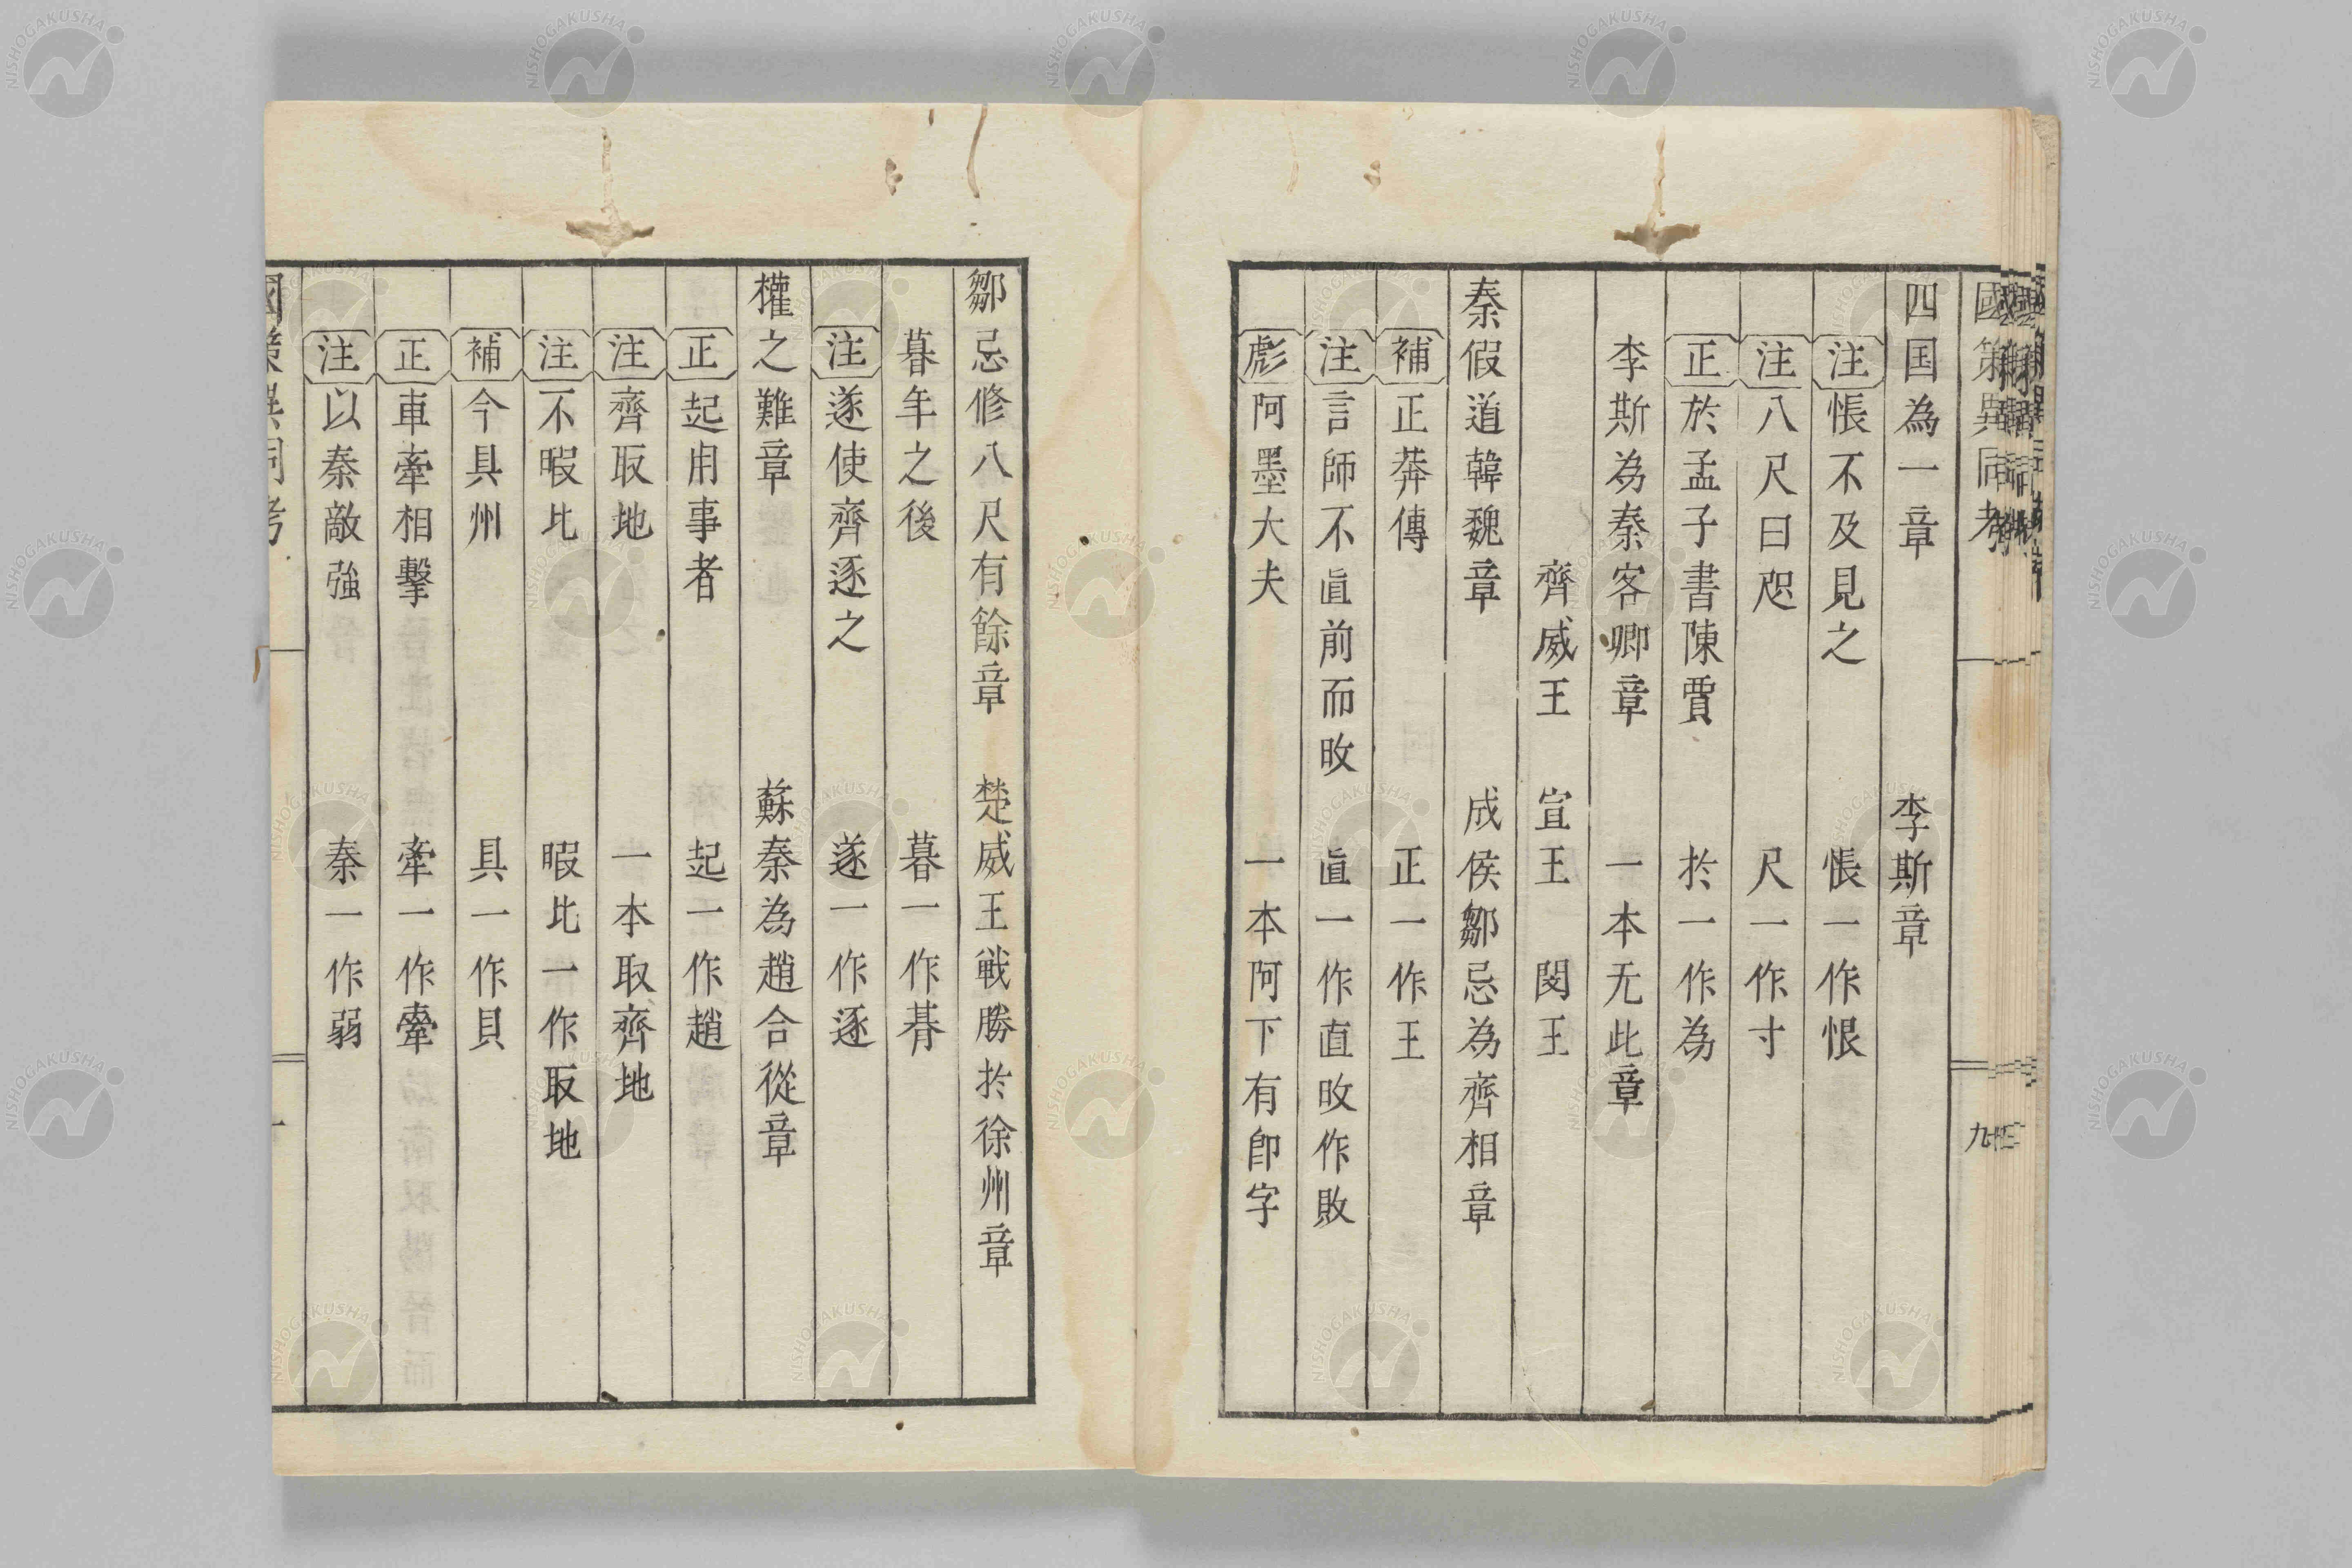 國策異同考
九
四国為一章　李斯章
注　悵不及見之　悵一作恨
注　八尺曰咫　尺一作寸
正　於孟子書陳賈　於一作為
李斯為秦客卿章　一本无此章
齊威王　宣王　閔王
秦假道韓魏章　成侯鄒忌為齊相章
補　正莽傳　正一作王
注　言師不直前而敗　直一作直敗作敗
彪　阿墨大夫　一本阿下有卽字
鄒忌修八尺有餘章　楚威王戦勝於徐州章
暮年之後　暮一作朞
注　遂使齊逐之　遂一作逐
權之難章　蘇秦為趙合從章
正　起用事者　起一作趙
注　齊取地　一本取齊地
注　不暇比　暇比一作取地
補　今具州　具一作貝
正　車牽相擊　牽一作轊
注　以秦敵強　秦一作弱
國策異同考
NISHOGAKUSHA